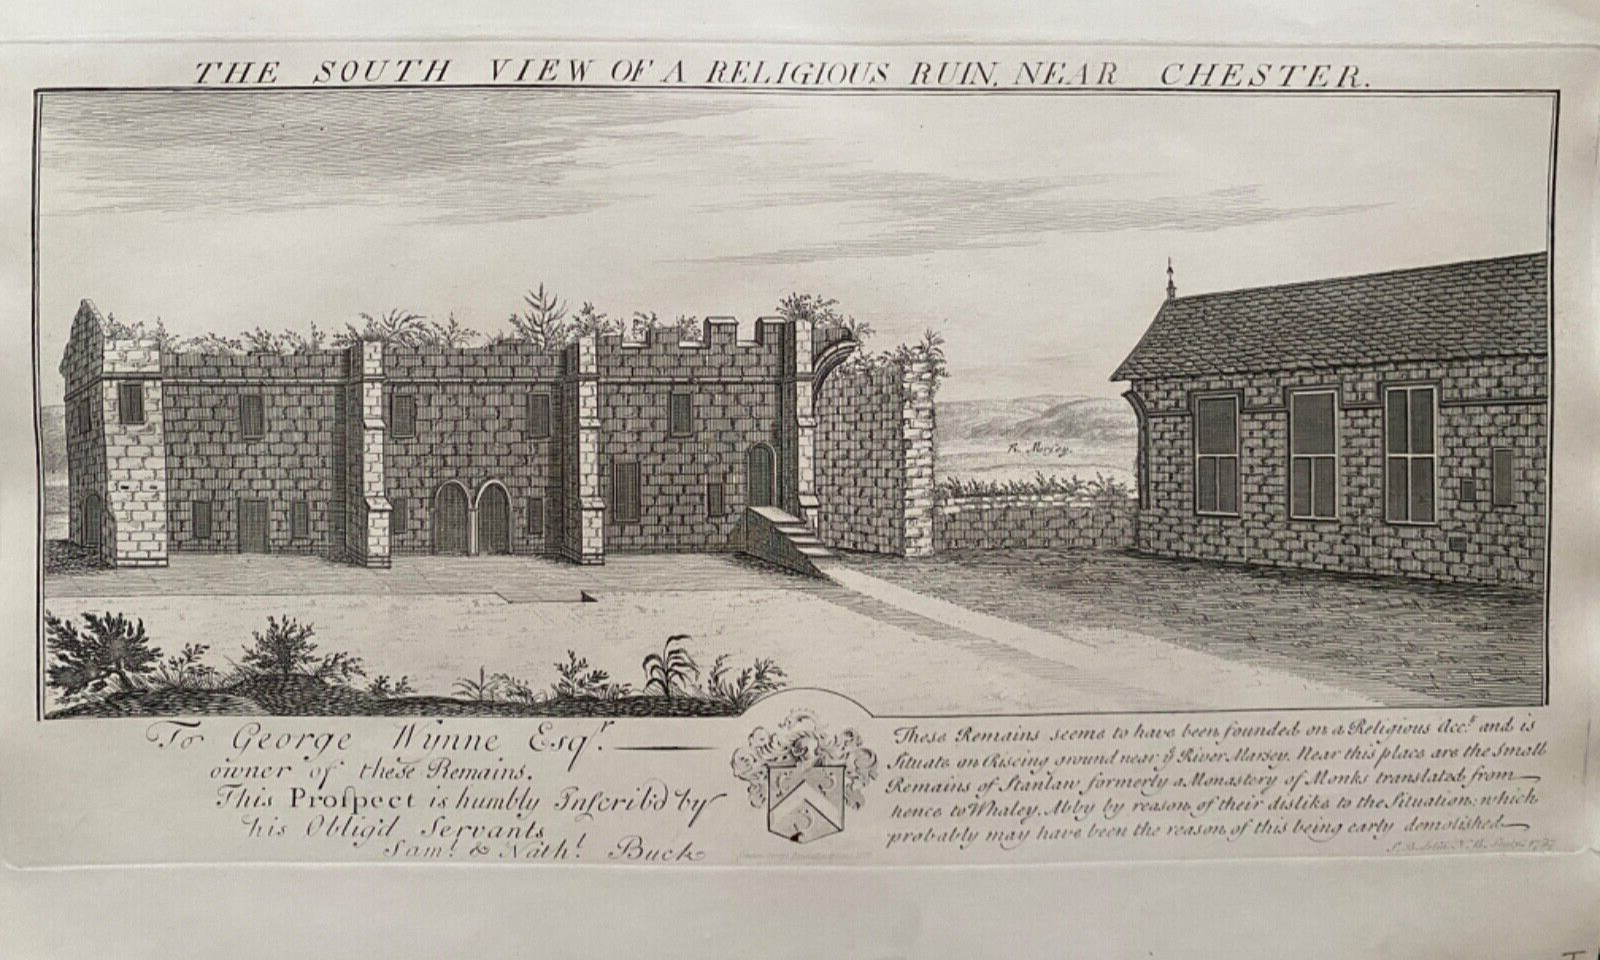 THE SOUTH VIEW OF A RELIGIOUS RUIN, NEAR CHESTER.
R. Mersey.
To George Wynne Esqr.
owner of these Remains.
This Prospect is humbly Inscrib'd by
his Oblig'd Servants
Saml. & Nathl. Buck
These Remains seems to have been founded on a Religious Acct. and is
Situate on Riscing ground near ye River Marsey. Near this place are the Small
Remains of Stanlaw formerly a Monastery of Monks translated from
hence to Whaley Abby by reason of their dislike to the Situation; which
probably may have been the reason of this being early demolished